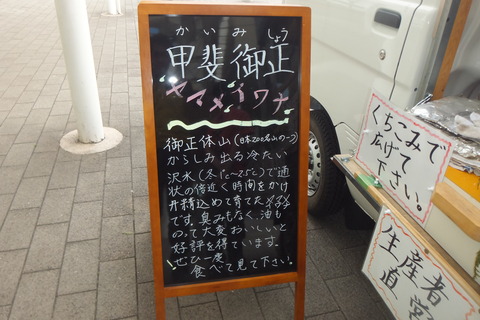 かいみ しょう
甲斐御正
ヤマメイワナ
御正体山(日本200名山の一つ)
からしみ出る冷たい
沢水(冬1℃〜2.5℃)で通
状の倍近く時間をかけ
丹精込めて育てた
です。臭みもなく、油も
のって大変おいしいと
好評を得ています。
ぜひ一度
食べて見て下さい。
くちこみで
広げて
下さい。
生産者
直営